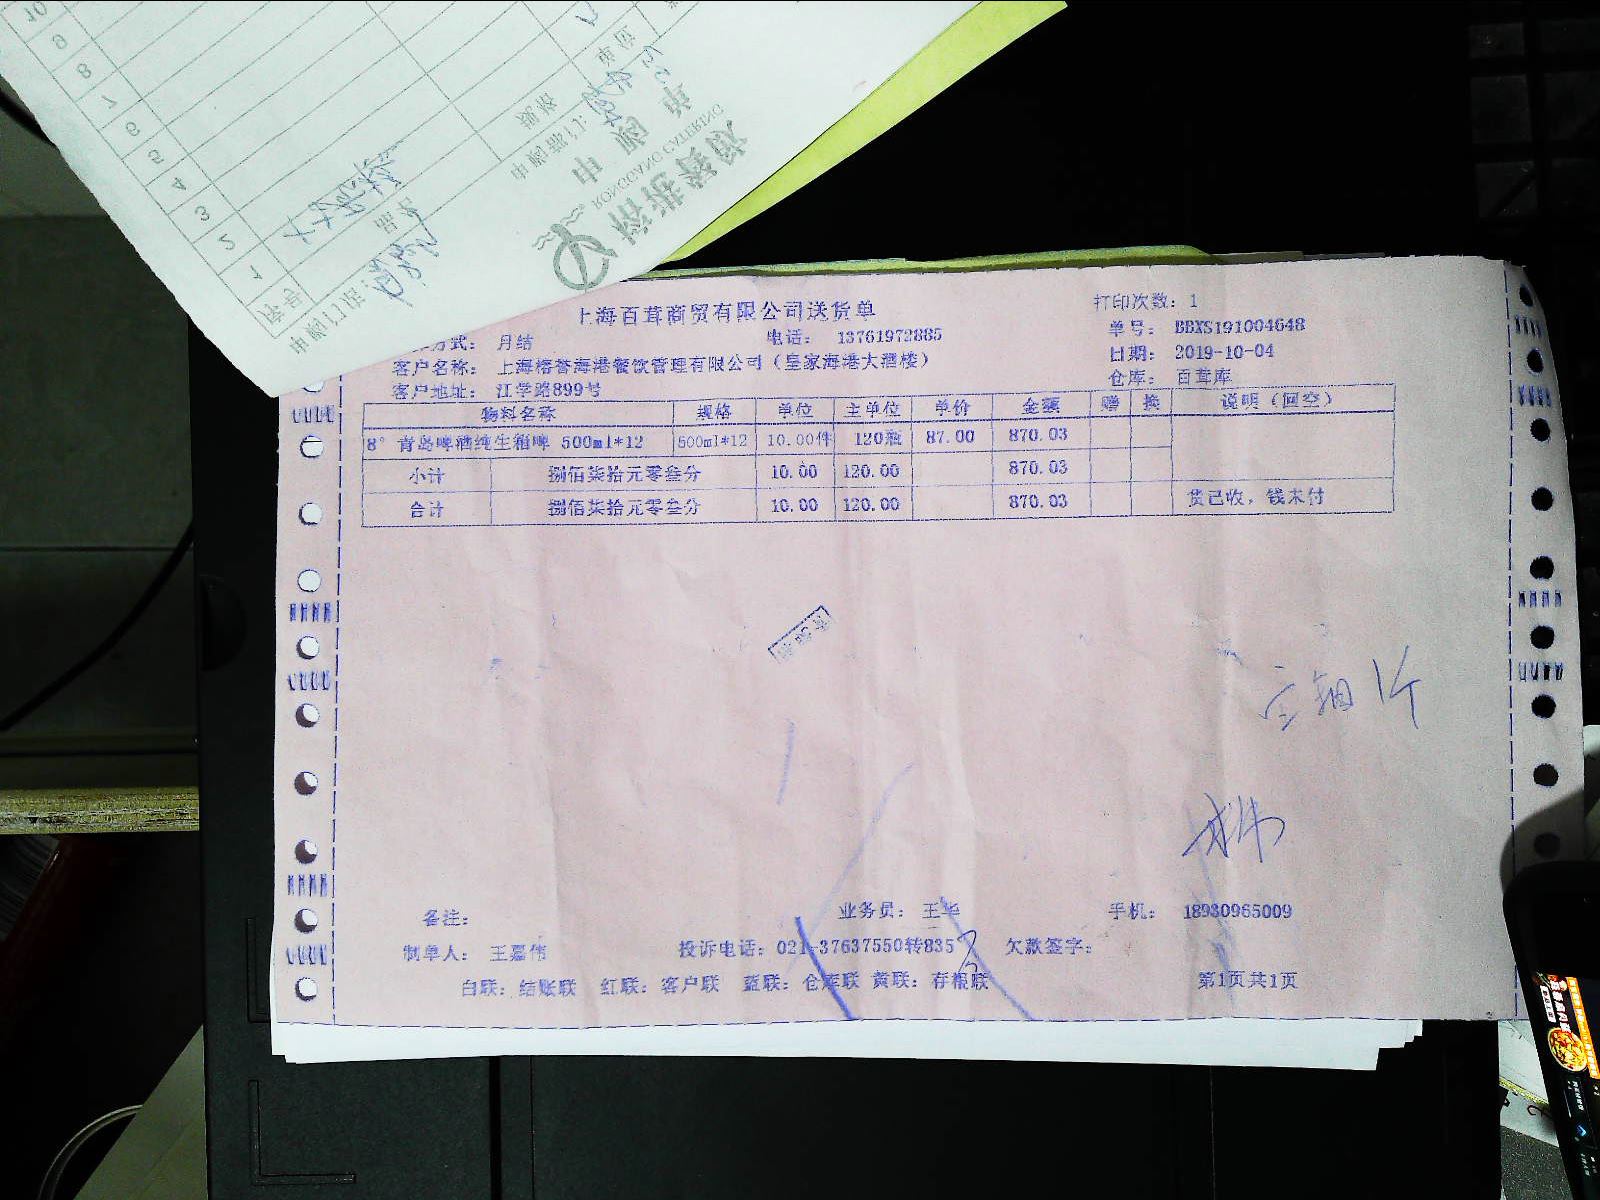 10
9
8
7
6
5
4
3
2
1
序号
品名
规格
单位
申购部门:
申购单
RONGGANG CATERING
上海百茸商贸有限公司送货单
打印次数: 1
方式: 月结 电话: 13761972885 单号: BBXS191004648
客户名称: 上海榕誉海港餐饮管理有限公司(皇家海港大酒楼) 日期: 2019-10-04
客户地址: 江学路899号 仓库: 百茸库
物料名称 规格 单位 主单位 单价 金额 赠 换 说明(回空)
8° 青岛啤酒纯生箱啤 500ml*12 500ml*12 10.00件 120瓶 87.00 870.03
小计 捌佰柒拾元零叁分 10.00 120.00 870.03
合计 捌佰柒拾元零叁分 10.00 120.00 870.03 货已收，钱未付
备注: 业务员: 王华 手机: 18930965009
制单人: 王嘉伟 投诉电话: 021-37637550转835 欠款签字:
白联: 结账联 红联: 客户联 蓝联: 仓库联 黄联: 存根联 第1页共1页